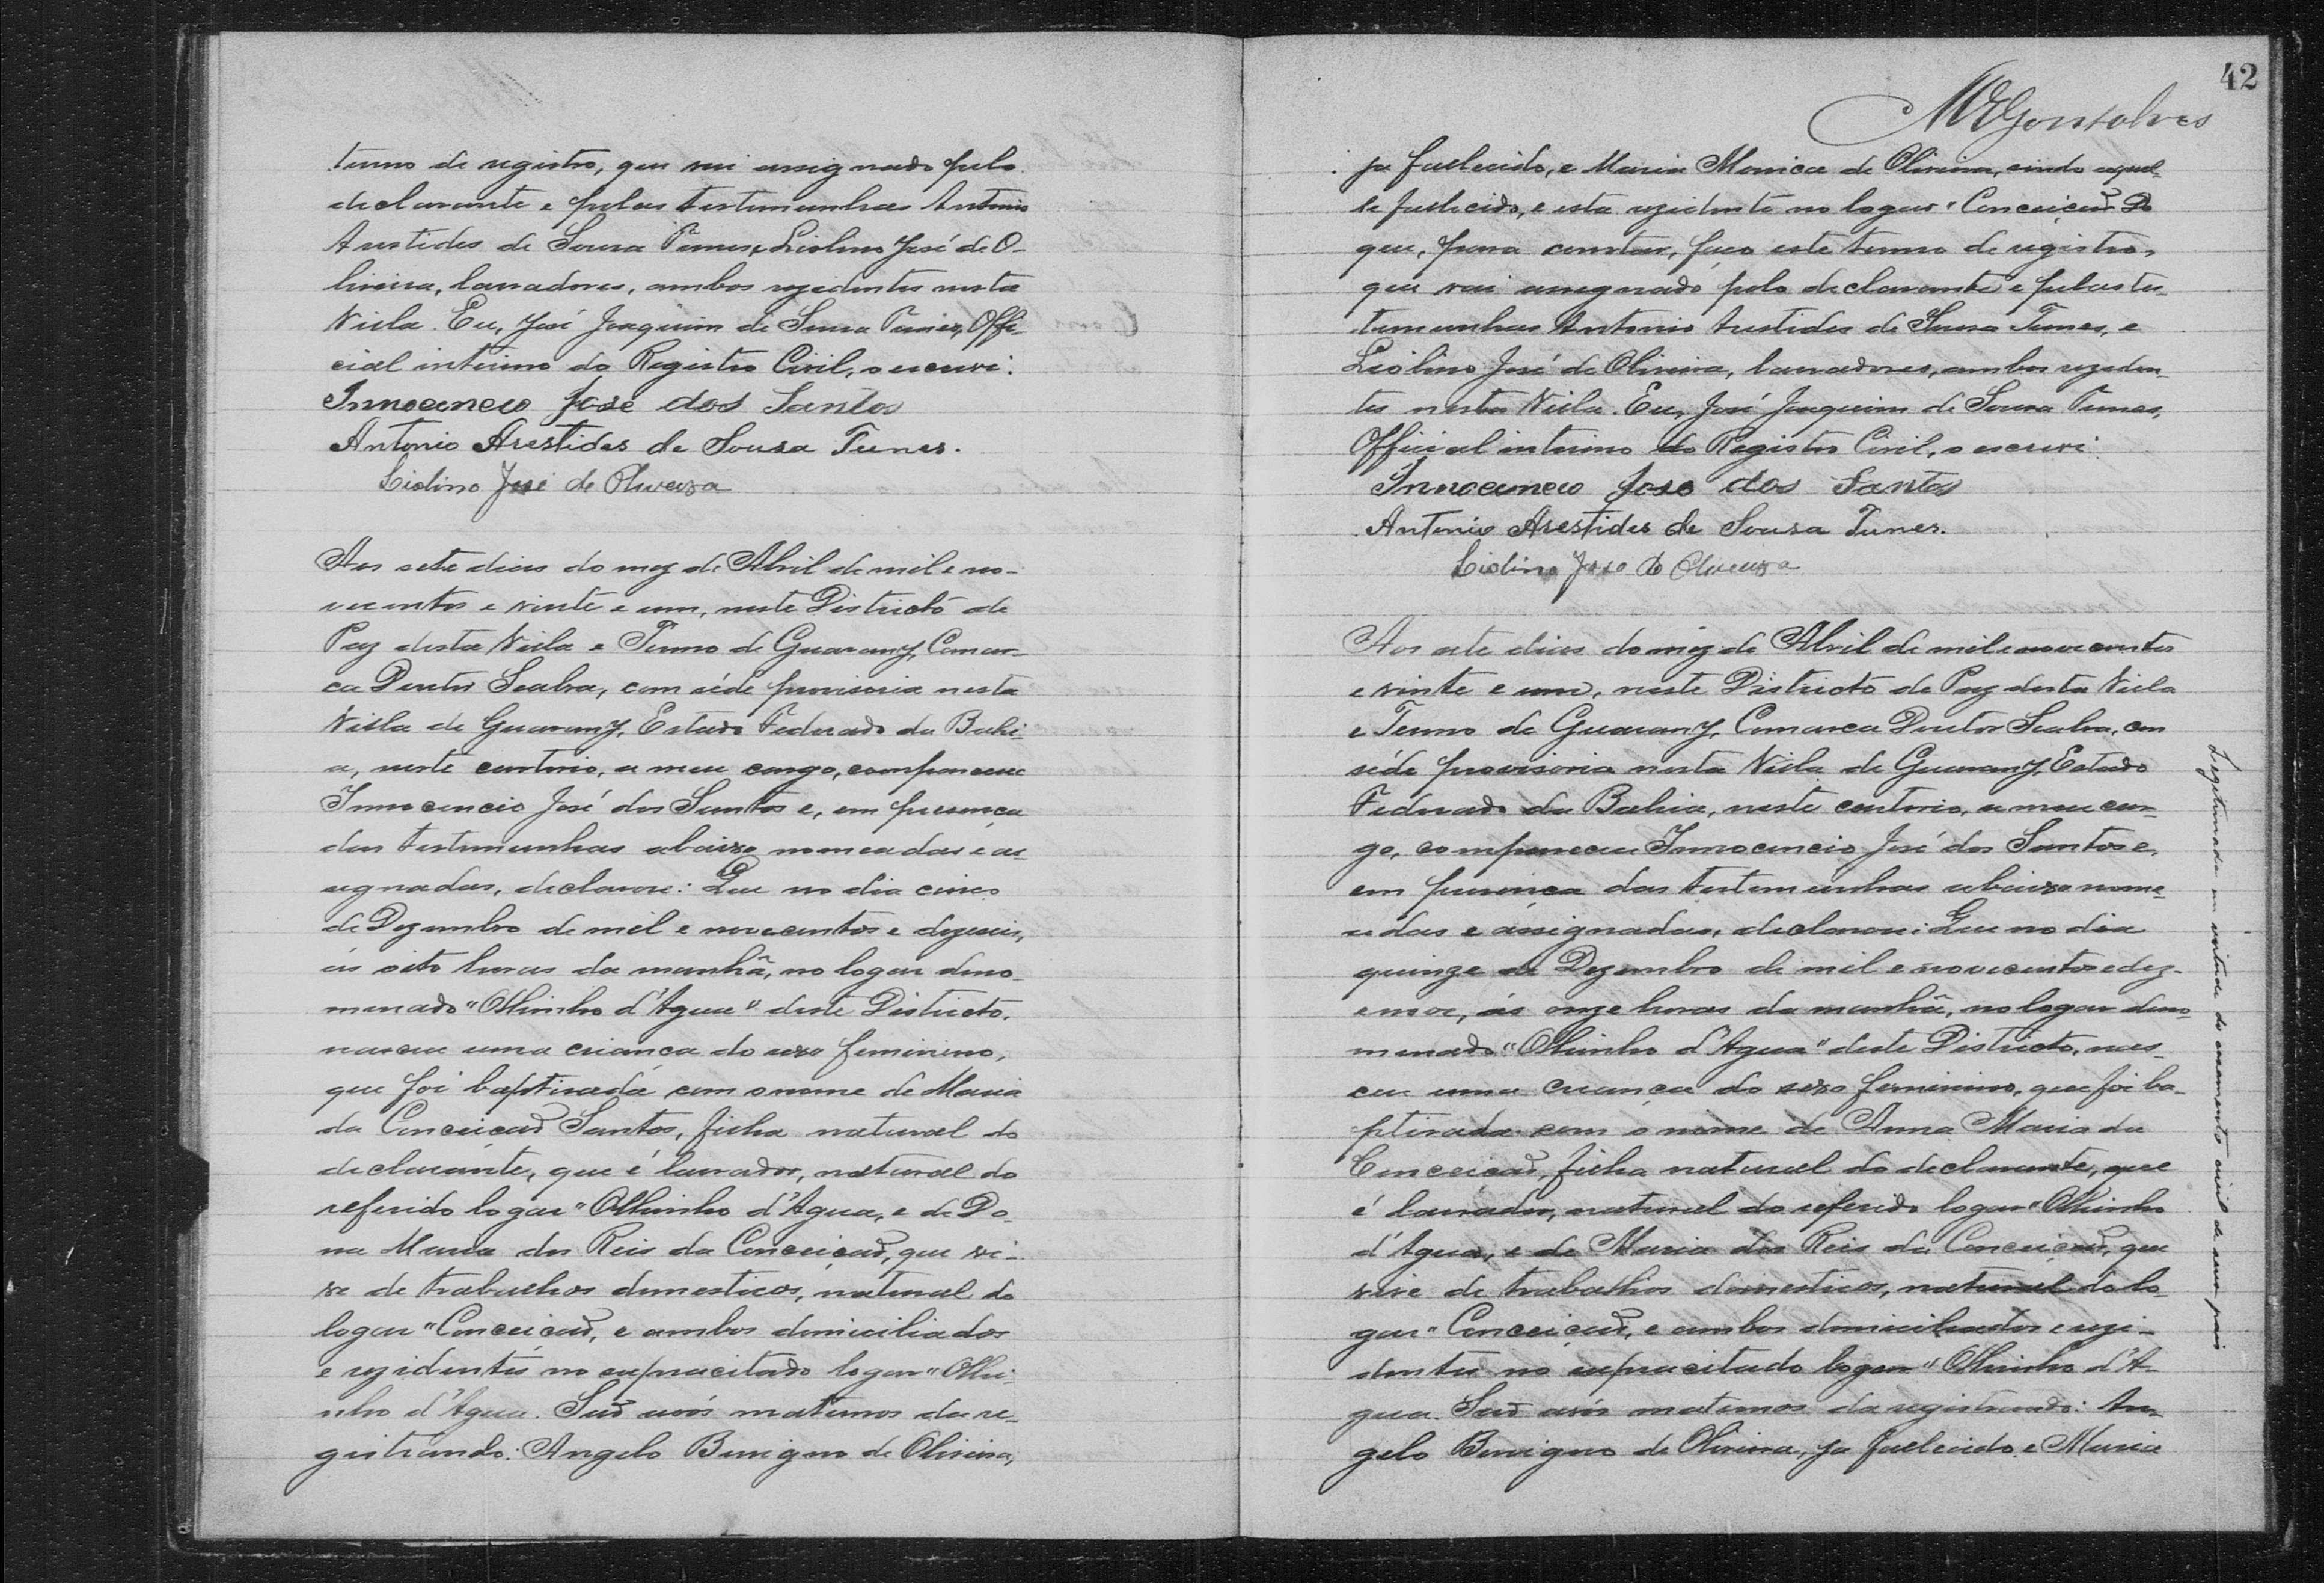 termo de registro, que vai assignado pelo
declarante e pelas testemunhas Antonio
Arestides de Sousa Tunes, e Liolino José de O-
liveira, lavradores, ambos rezidentes nesta
Villa. Eu, José Joaquim de Sousa Tunes, Offi-
cial interino do Registro Civil, o escrevi.
Innocencio Jose dos Santos
Antonio Arestides de Sousa Tunes.
Liolino José de Oliveira
Aos sete dias do mez de Abril de mil e no-
vecentos e vinte e um, neste Districto de
Paz desta Villa e Termo de Guarany, Comar-
ca Doutor Seabra, com séde provisoria nesta
Villa de Guarany, Estado Federado da Bahi-
a, neste cartorio, a meu cargo, compareceu
Innocencio José dos Santos e, em presença
das testemunhas abaixo nomeadas e as-
signadas, declarou: Que no dia cinco
de Dezembro de mil e novecentos e dezeseis,
ás oito horas da manhã, no logar deno-
minado "Olhinho d'Agua" deste Districto,
nasceu uma criança do sexo feminino,
que foi baptisada com o nome de Maria
da Conceição Santos, filha natural do
declarante, que é lavrador, natural do
referido logar "Olhinho d'Agua, e de Do-
na Maria dos Reis da Conceição, que vi-
ve de trabalhos domesticos, natural do
logar "Conceição, e ambos domiciliados
e rezidentes no supracitado logar "Olhi-
nho d'Agua. São avós maternos da re-
gistrando: Angelo Benigno de Oliveira,
42
MEGonsalves
ja fallecido, e Maria Monica de Oliveira, sendo aquel-
le fallecido, e esta rezidente no logar "Conceição Do
que, para constar, faço este termo de registro,
que vai assignado pelo declarante e pelas tes-
temunhas Antonio Arestides de Sousa Tunes, e
Liolino José de Oliveira, lavradores, ambos reziden-
tes nesta Villa. Eu, José Joaquim de Sousa Tunes,
Official interino do Registro Civil, o escrevi.
Innocencio Jose dos Santos
Antonio Arestides de Sousa Tunes.
Liolino Jose de Oliveira
Aos sete dias do mez de Abril de mil e novecentos
e vinte e um, neste Districto de Paz desta Villa
e Termo de Guarany, Comarca Doutor Seabra, com
séde provisoria nesta Villa de Guarany, Estado
Federado da Bahia, neste cartorio, a meu car-
go, compareceu Innocencio José dos Santos e,
em presença das testemunhas abaixo nome-
adas e assignadas, declarou: Que no dia
quinze de Dezembro de mil e novecentos e dez-
enove, ás onze horas da manhã, no logar deno-
minado "Olhinho d'Agua" deste Districto, nas-
ceu uma criança do sexo feminino, que foi ba-
ptisada com o nome de Anna Maria da
Conceição, filha natural do declarante, que
é lavrador, natural do referido logar "Olhinho
d'Agua, e de Maria dos Reis da Conceição, que
vive de trabalhos domesticos, natural do lo-
gar "Conceição, e ambos domiciliados e rezi-
dentes no supracitado logar "Olhinho d'A-
gua. São avós maternos da registrando: An-
gelo Benigno de Oliveira, ja fallecido e Maria
Legitimada em virtude do casamento civil de seus pais